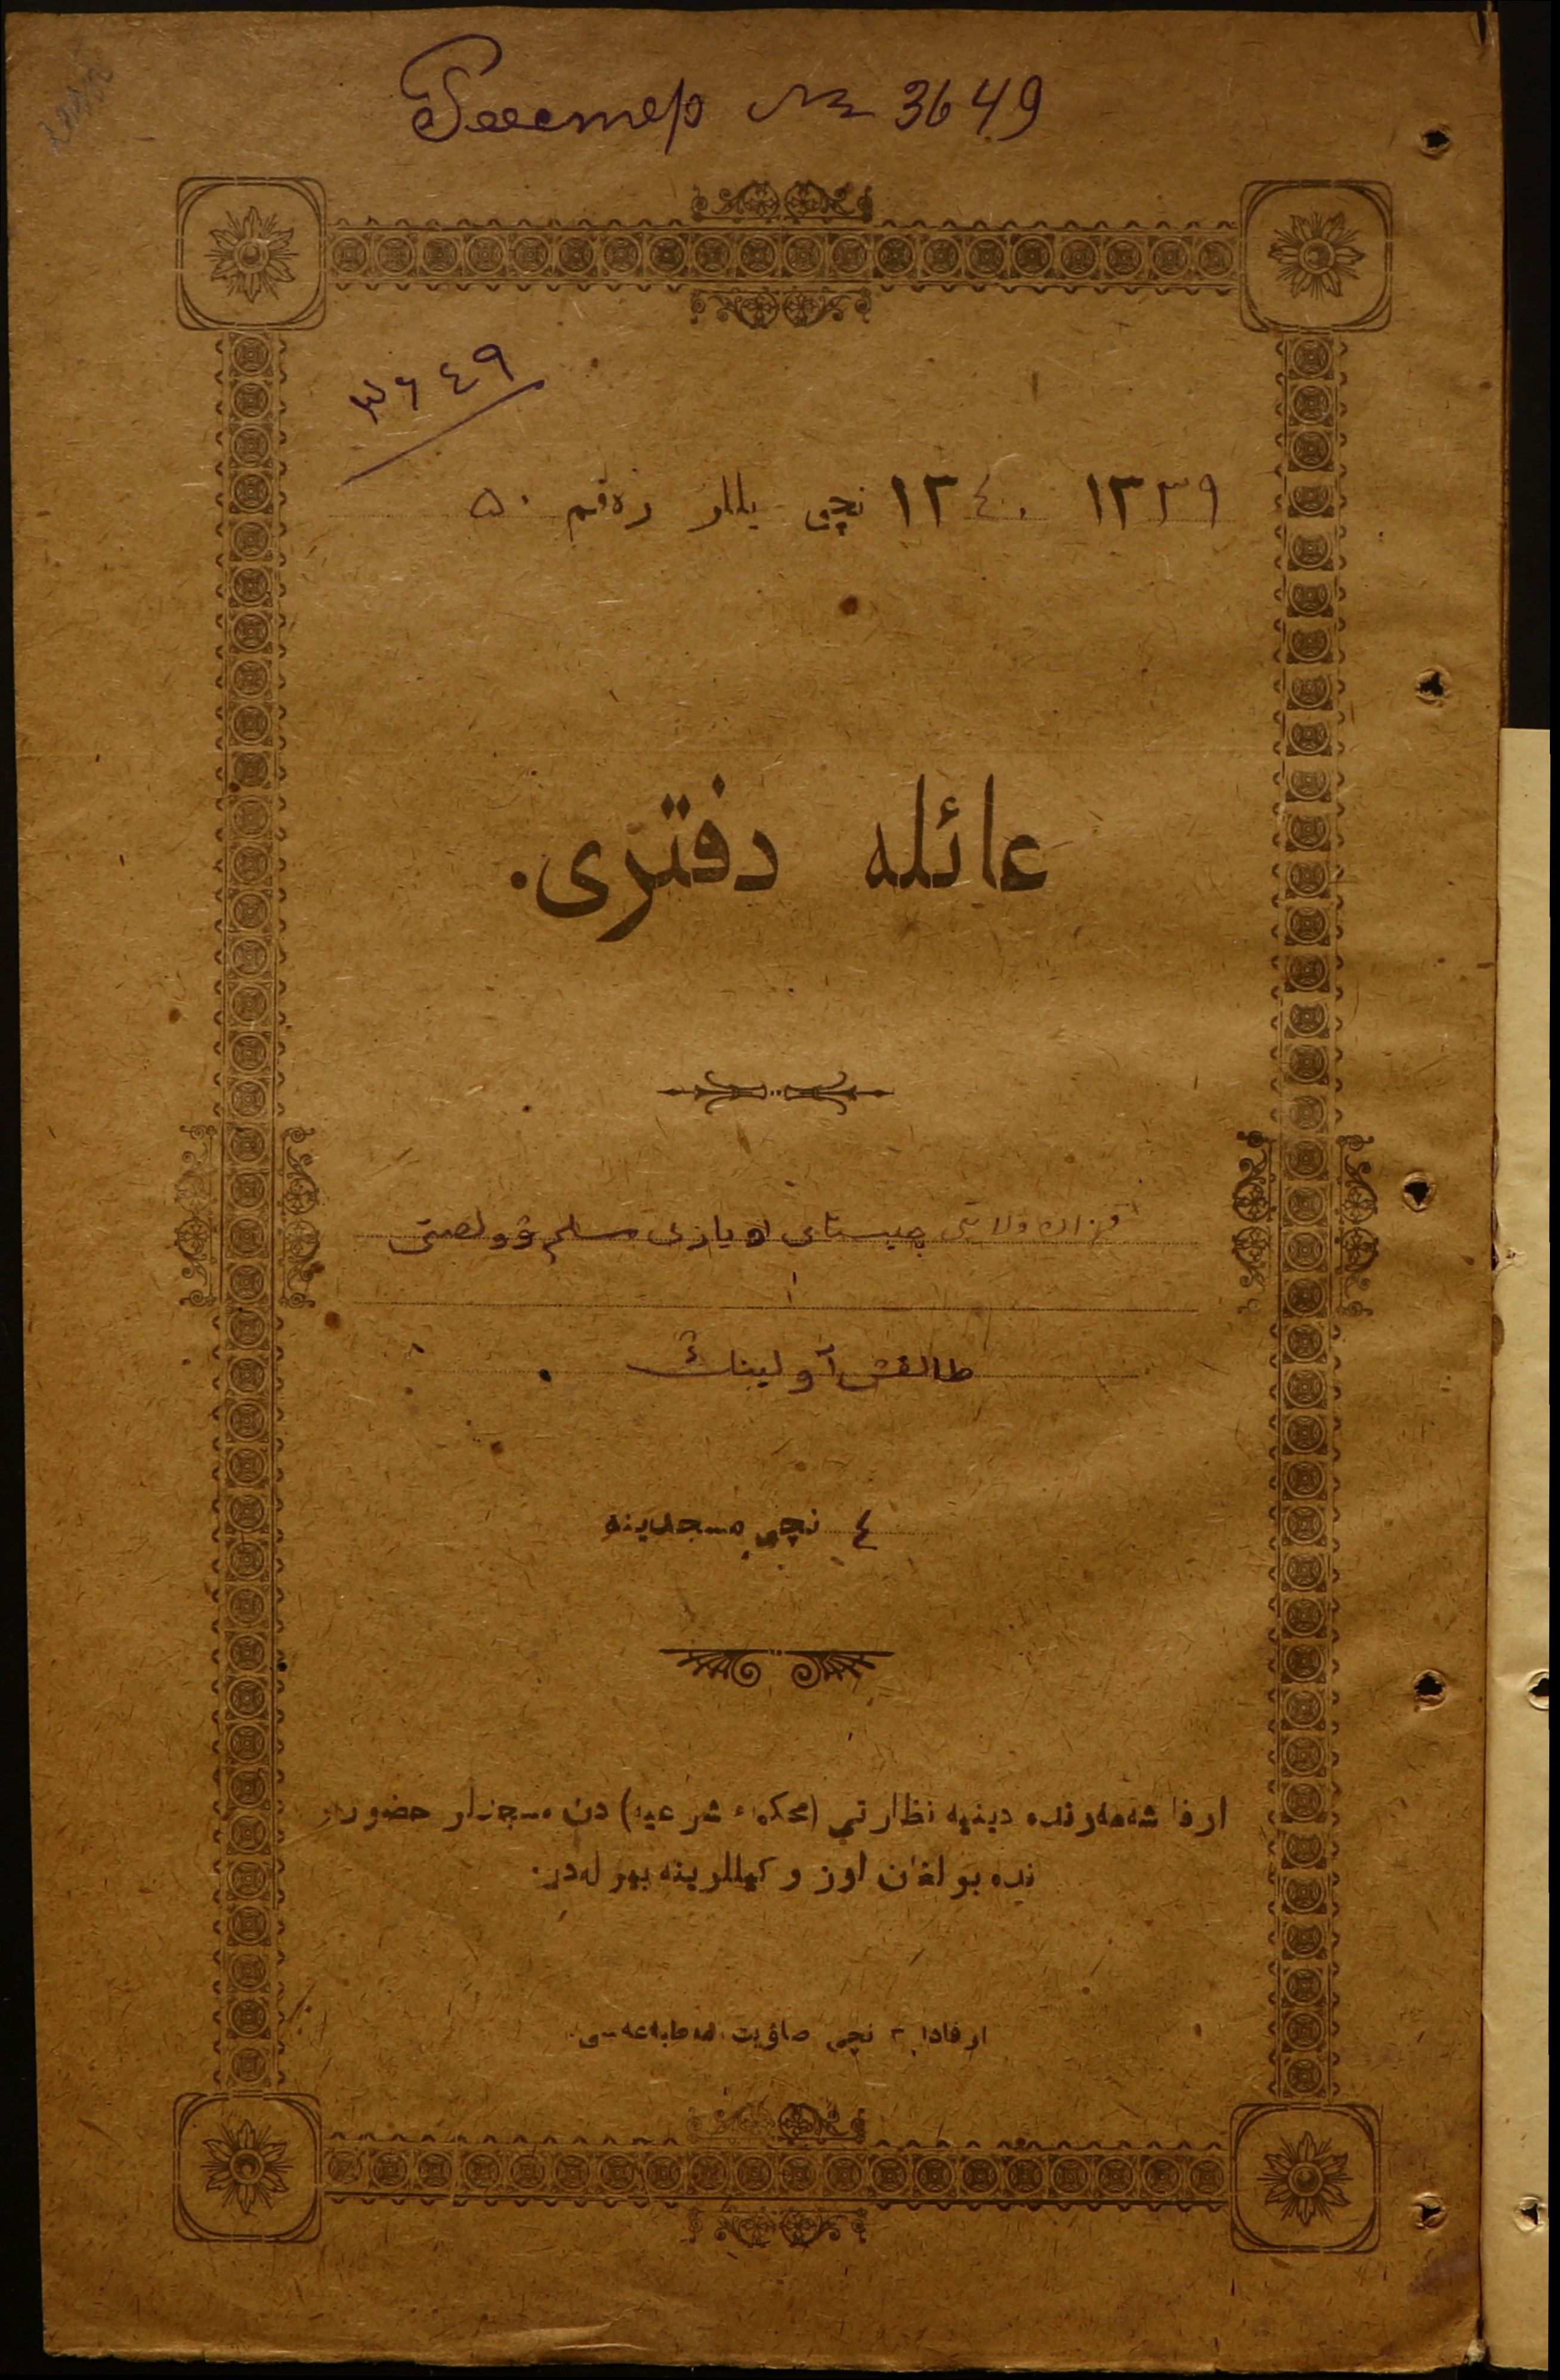 Реестр № 3649
٣٦٤٩
١٣٣٩ ١٣٤٠ نچی یللر رەقم ٥٠
عائله دفتری.
چیستای اویازی
طالقش آولینڭ
٤ نچی مسجدینه
ارفا شەهەرندە دینیه نظارتی (محکمهٔ شرعیه) دن مسجدلر حضور
ندە بولغان اوز وکیللرینه بیرلەدر.
نچی صاۋیت مەطبەعەسی.